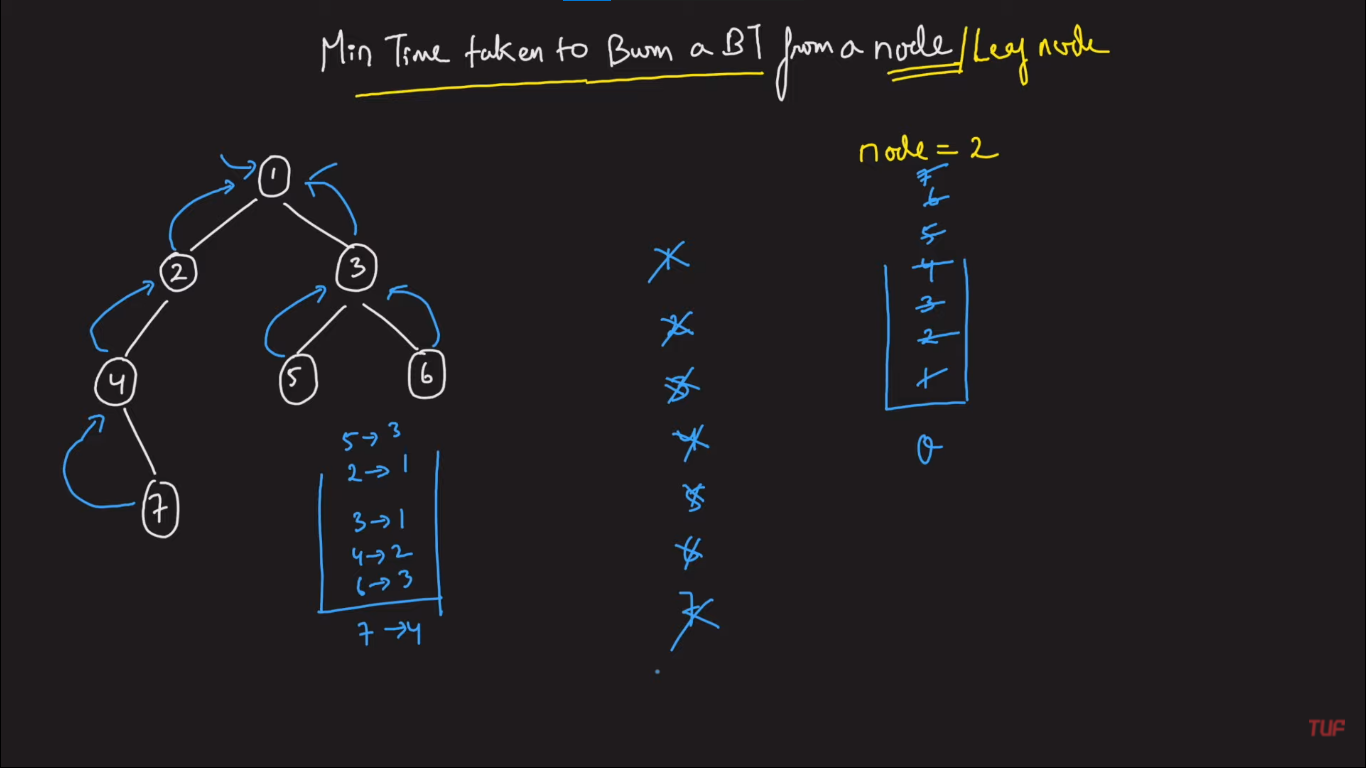 Min Time taken to Burn a BT from a node/Leaf node
node = 2
1
2 3
4 5 6
7
5→3
2→1
3→1
4→2
6→3
7→4
1
2
3
4
5
6
7
7
6
5
4
3
2
1
0
TUF